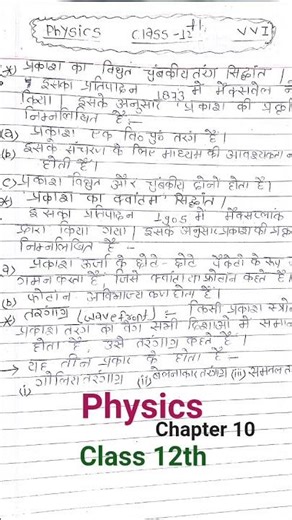 Physics Class-12th VVI
* प्रकाश का विद्युत चुंबकीय तरंग सिद्धांत ।
इसका प्रतिपादन 1873 में मैक्सवेल ने
किया। इसके अनुसार प्रकाश की प्रकृति
निम्नलिखित है :-
(a) प्रकाश एक वि० चु० तरंग है।
(b) इसके संचरण के लिए माध्यम की आवश्यकता न
होती है।
(c) प्रकाश विद्युत और चुंबकीय दोनो होता है।
* प्रकाश का क्वांटम सिद्धांत ।
इसका प्रतिपादन 1905 में मैक्सप्लांक
द्वारा किया गया। इसके अनुसार प्रकाश की प्रकृ
निम्नलिखित है -
a) प्रकाश ऊर्जा के छोटे - छोटे पैकेटो के रूप
गमन करता है जिसे क्वांटा या फोटान कहते हैं।
(b) फोटान अविभाज्य कण होता है।
* तरंगाग्र (wavefront) :- किसी प्रकाश स्त्रोत
प्रकाश तरंग का वेग सभी दिशाओं में समान
होता है, उसे तरंगाग्र कहते हैं।
→ यह तीन प्रकार के होता है -
(i) गोलिय तरंगाग्र (ii) बेलनाकार तरंगाग्र (iii) समतल तरं
Physics
Chapter 10
Class 12th